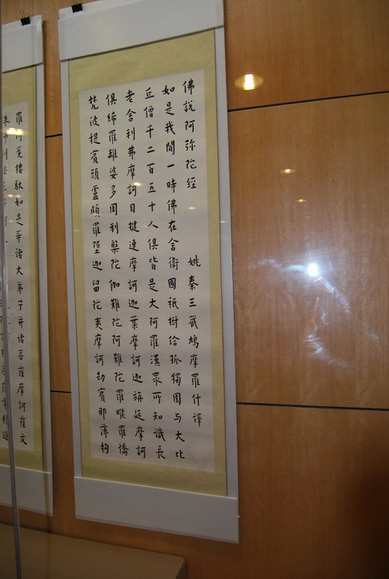 佛說阿弥陀經　姚秦三藏鳩摩羅什譯
如是我聞一時佛在舍衛國祇樹給孤獨園与大比
丘僧千二百五十人俱皆是大阿羅漢眾所知識長
老舍利弗摩訶目揵連摩訶迦葉摩訶迦旃延摩訶
俱絺羅離婆多周利槃陀伽難陀阿難陀羅睺羅憍
梵波提賓頭盧頗羅墮迦留陀夷摩訶劫賓那薄拘
羅阿㝹樓馱如是等諸大弟子并諸菩薩摩訶薩文